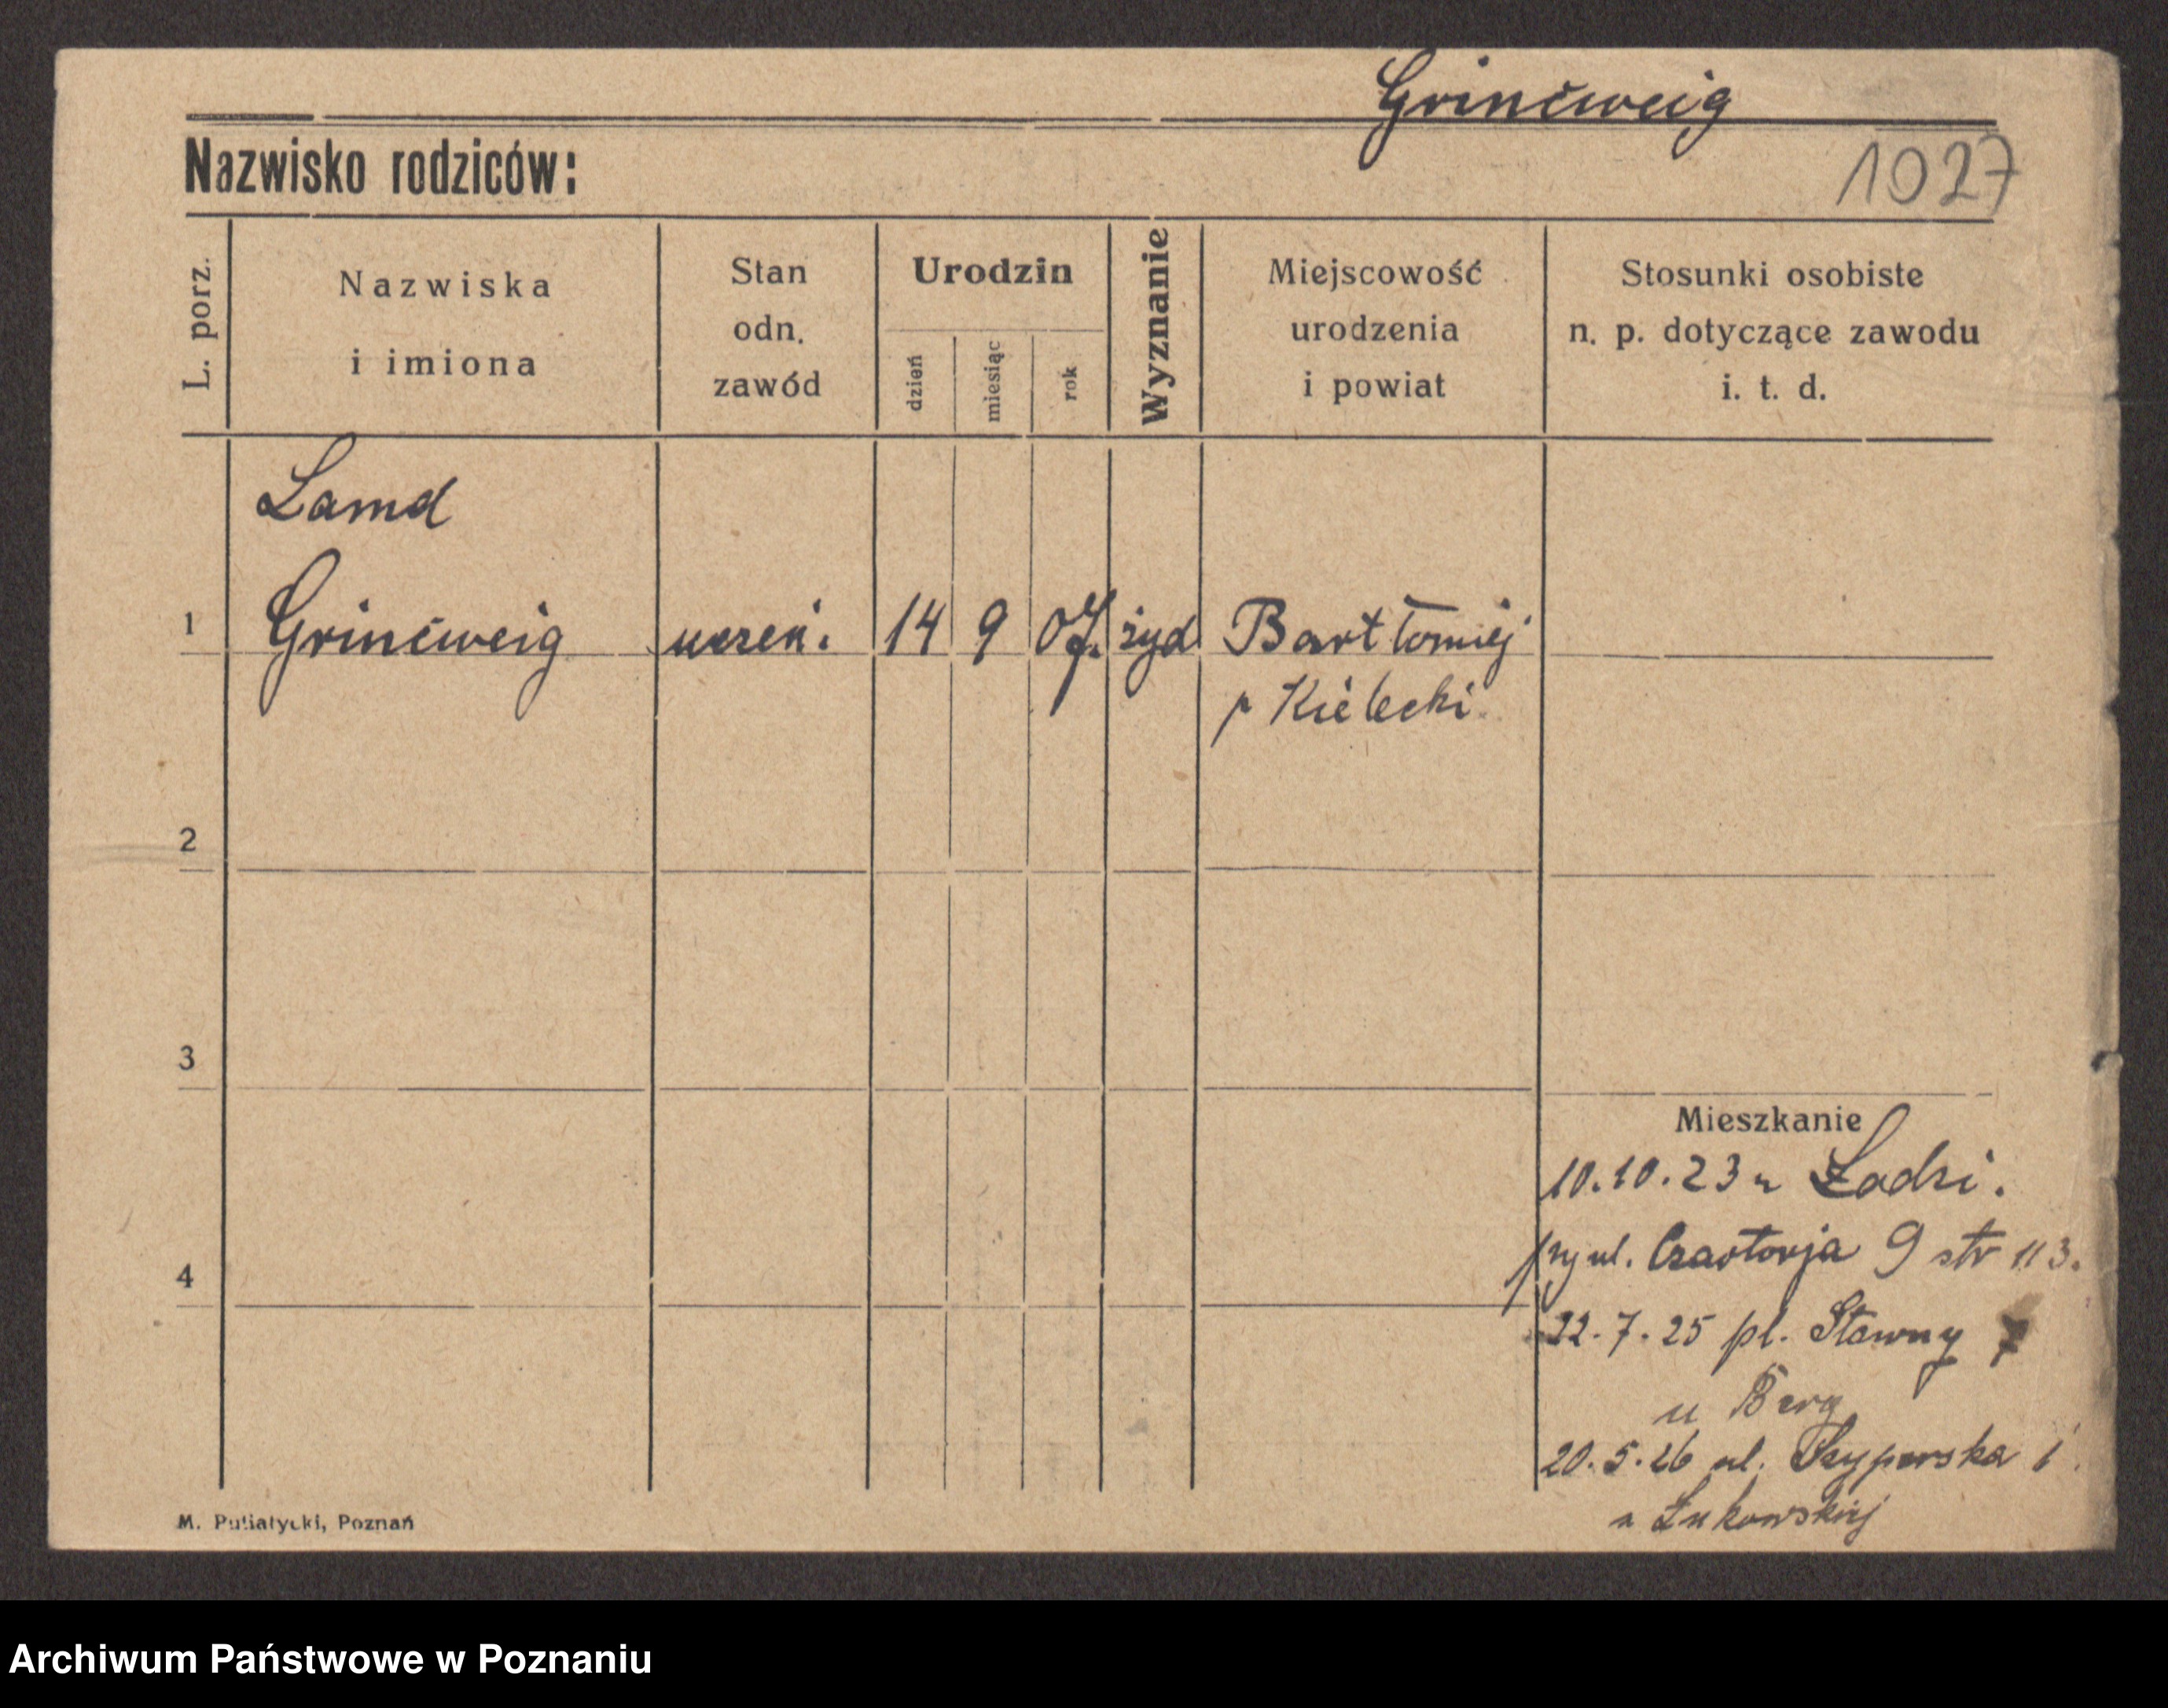 Grinćweig
Nazwisko rodziców:
1027
L. porz.
Nazwiska
i imiona
Stan
odn.
zawód
Urodzin
dzień
miesiąc
rok
Wyznanie
Miejscowość
urodzenia
i powiat
Stosunki osobiste
n. p. dotyczące zawodu
i. t. d.
Lamd
1 Grinćweig uczeń. 14 9 07. żyd Bartłomiej
p Kielecki
2
3
4
Mieszkanie
10.10.23 z Łodzi.
przy ul. Czartorja 9 str 113.
22.7.25 pl. Stawny 7
u Berg
20.5.26 ul. Szyperska 1.
u Łukowskiej
M. Putiatycki, Poznań
Archiwum Państwowe w Poznaniu